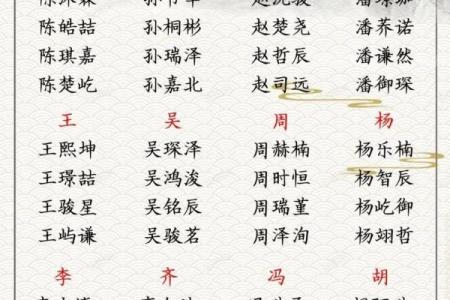 陈皓喆 孙桐彬 赵楚尧 潘荞诺
陈琪嘉 孙瑞泽 赵哲辰 潘谦然
陈楚屹 孙嘉北 赵司远 潘御琛
王 吴 周 杨
王熙坤 吴琛泽 周赫楠 杨乐楠
王璟喆 吴鸿浚 周时恒 杨智辰
王骏星 吴铭辰 周瑞堇 杨屹御
王屿谦 吴骏茗 周泽洵 杨翊哲
李 齐 冯 胡